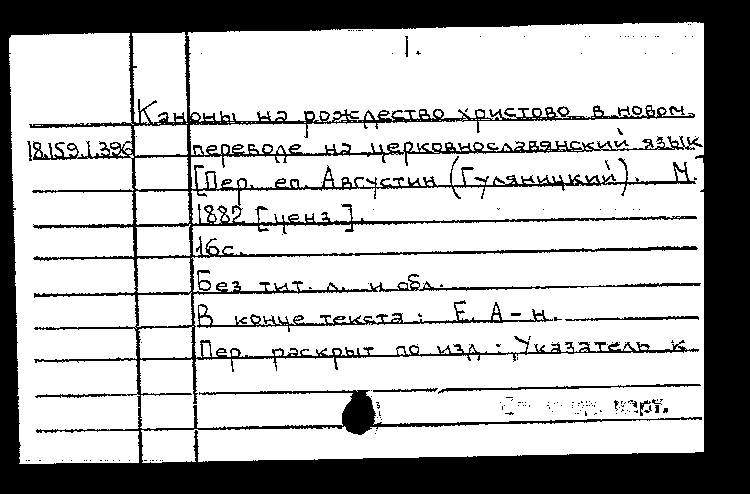 1.
Каноны на рождество христово в новом
18.159.1.396 переводе на церковнославянский язык
[Пер. еп. Августин (Гуляницкий). М.]
1882 [ценз.].
16с.
Без тит. л. и обл.
В конце текста: Е. А-н.
Пер. раскрыт по изд.: „Указатель к
карт.